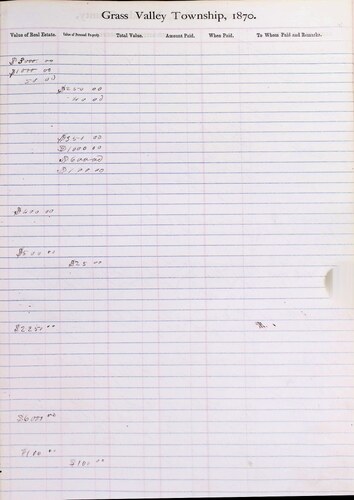 Grass Valley Township, 1870.
Value of Real Estate. Value of Personal Property Total Value. Amount Paid. When Paid. To Whom Paid and Remarks.
$1000 00
50 00
$250 00
40 00
$350 00
$1000 00
$600 00
$100 00
$400 00
$500 00
$25 00
$2250 00
$6000 00
$100 00
$100 00